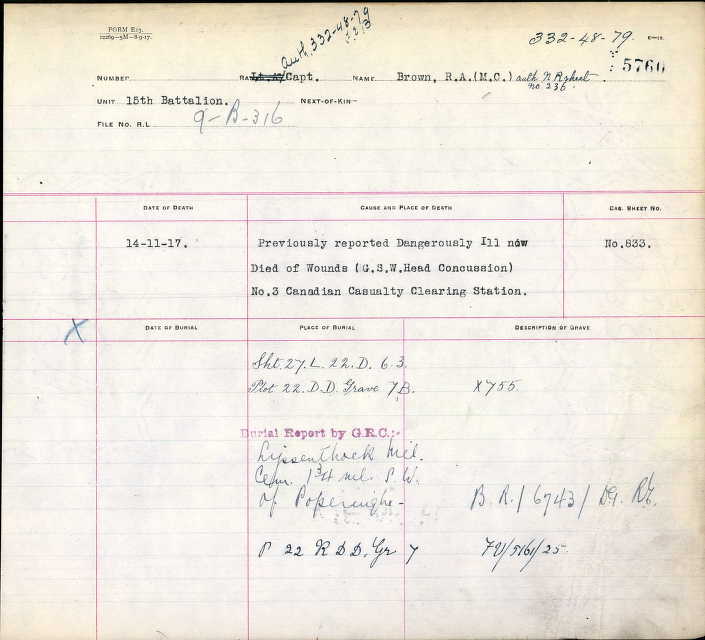 FORM E13.
auth. 332-48-79
332-48-79.
5760
NUMBER RANK Capt. NAME Brown, R.A.(M.C.) auth N R sheet
no. 236.
UNIT 15th Battalion. NEXT-OF-KIN
FILE NO. R.L. 9-B-316
DATE OF DEATH CAUSE AND PLACE OF DEATH CAS. SHEET NO.
14-11-17. Previously reported Dangerously Ill now No.833.
Died of Wounds (G.S.W.Head Concussion)
No.3 Canadian Casualty Clearing Station.
X DATE OF BURIAL PLACE OF BURIAL DESCRIPTION OF GRAVE
Sht. 27. L. 22. D. 6.3.
Plot 22. D.D. Grave 7.B. X755
Burial Report by G.R.C.:-
Lijssenthoek Mil.
Cem. 1 3/4 ml. S.W.
of Poperinghe- B.R./6743/
P 22 R D D. Gr 7